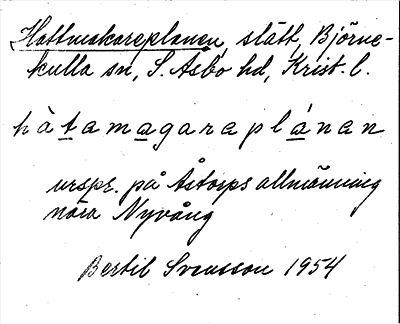 Hattmakareplanen, slätt, Björne-
kulla sn, S. Åsbo hd, Krist. l.
hàtamagareplánan
urspr. på Åstorps allmänning
nära Nyvång
Bertil Svensson 1954